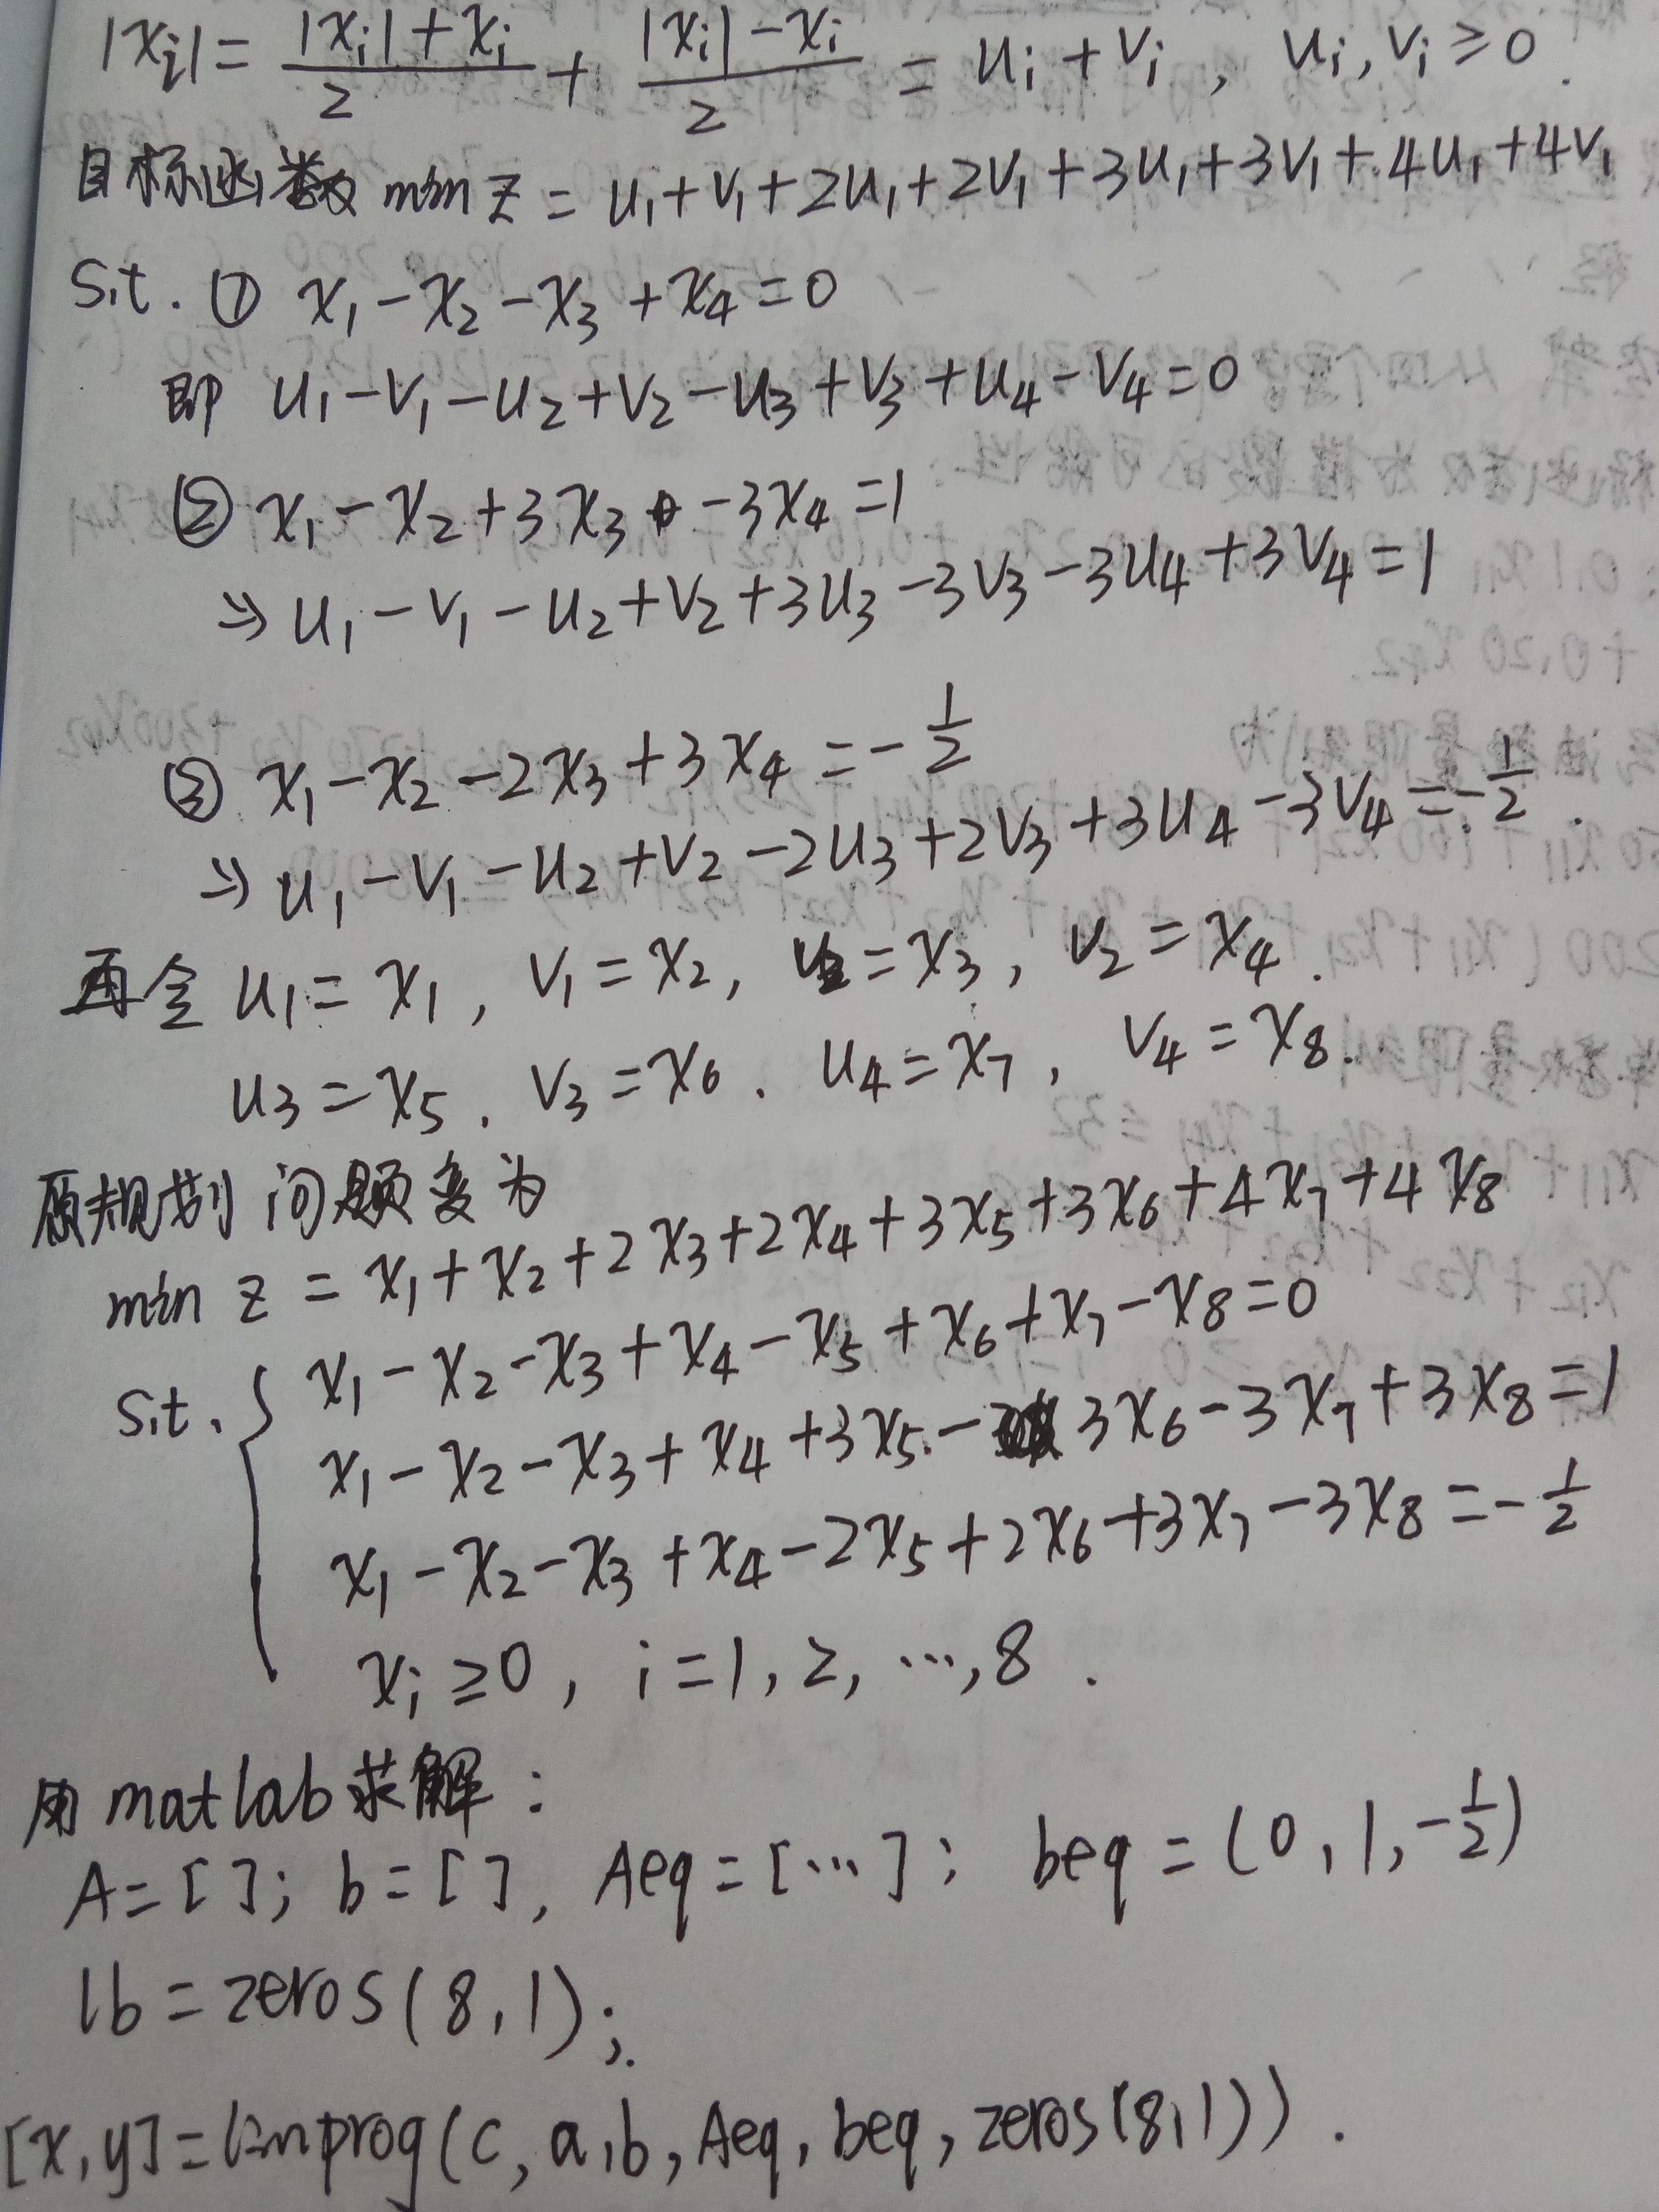 |xi| = (|xi|+xi)/2 + (|xi|-xi)/2 = ui + vi , ui, vi ≥ 0.
目标函数 min z = u1+v1+2u1+2v1+3u1+3v1+4u1+4v1
s.t. ① x1-x2-x3+x4=0
即 u1-v1-u2+v2-u3+v3+u4-v4=0
② x1-x2+3x3-3x4=1
⇒ u1-v1-u2+v2+3u3-3v3-3u4+3v4=1
③ x1-x2-2x3+3x4=-1/2
⇒ u1-v1-u2+v2-2u3+2v3+3u4-3v4=-1/2.
再令 u1=x1, v1=x2, u2=x3, v2=x4.
u3=x5. v3=x6. u4=x7, v4=x8.
原规划问题变为
min z = x1+x2+2x3+2x4+3x5+3x6+4x7+4x8
s.t. { x1-x2-x3+x4-x5+x6+x7-x8=0
x1-x2-x3+x4+3x5-3x6-3x7+3x8=1
x1-x2-x3+x4-2x5+2x6+3x7-3x8=-1/2
xi≥0, i=1,2,…,8.
用matlab求解:
A=[ ]; b=[ ], Aeq=[…]; beq=(0,1,-1/2)
lb=zeros(8,1);
[x,y]=linprog(c,a,b,Aeq,beq,zeros(8,1)).